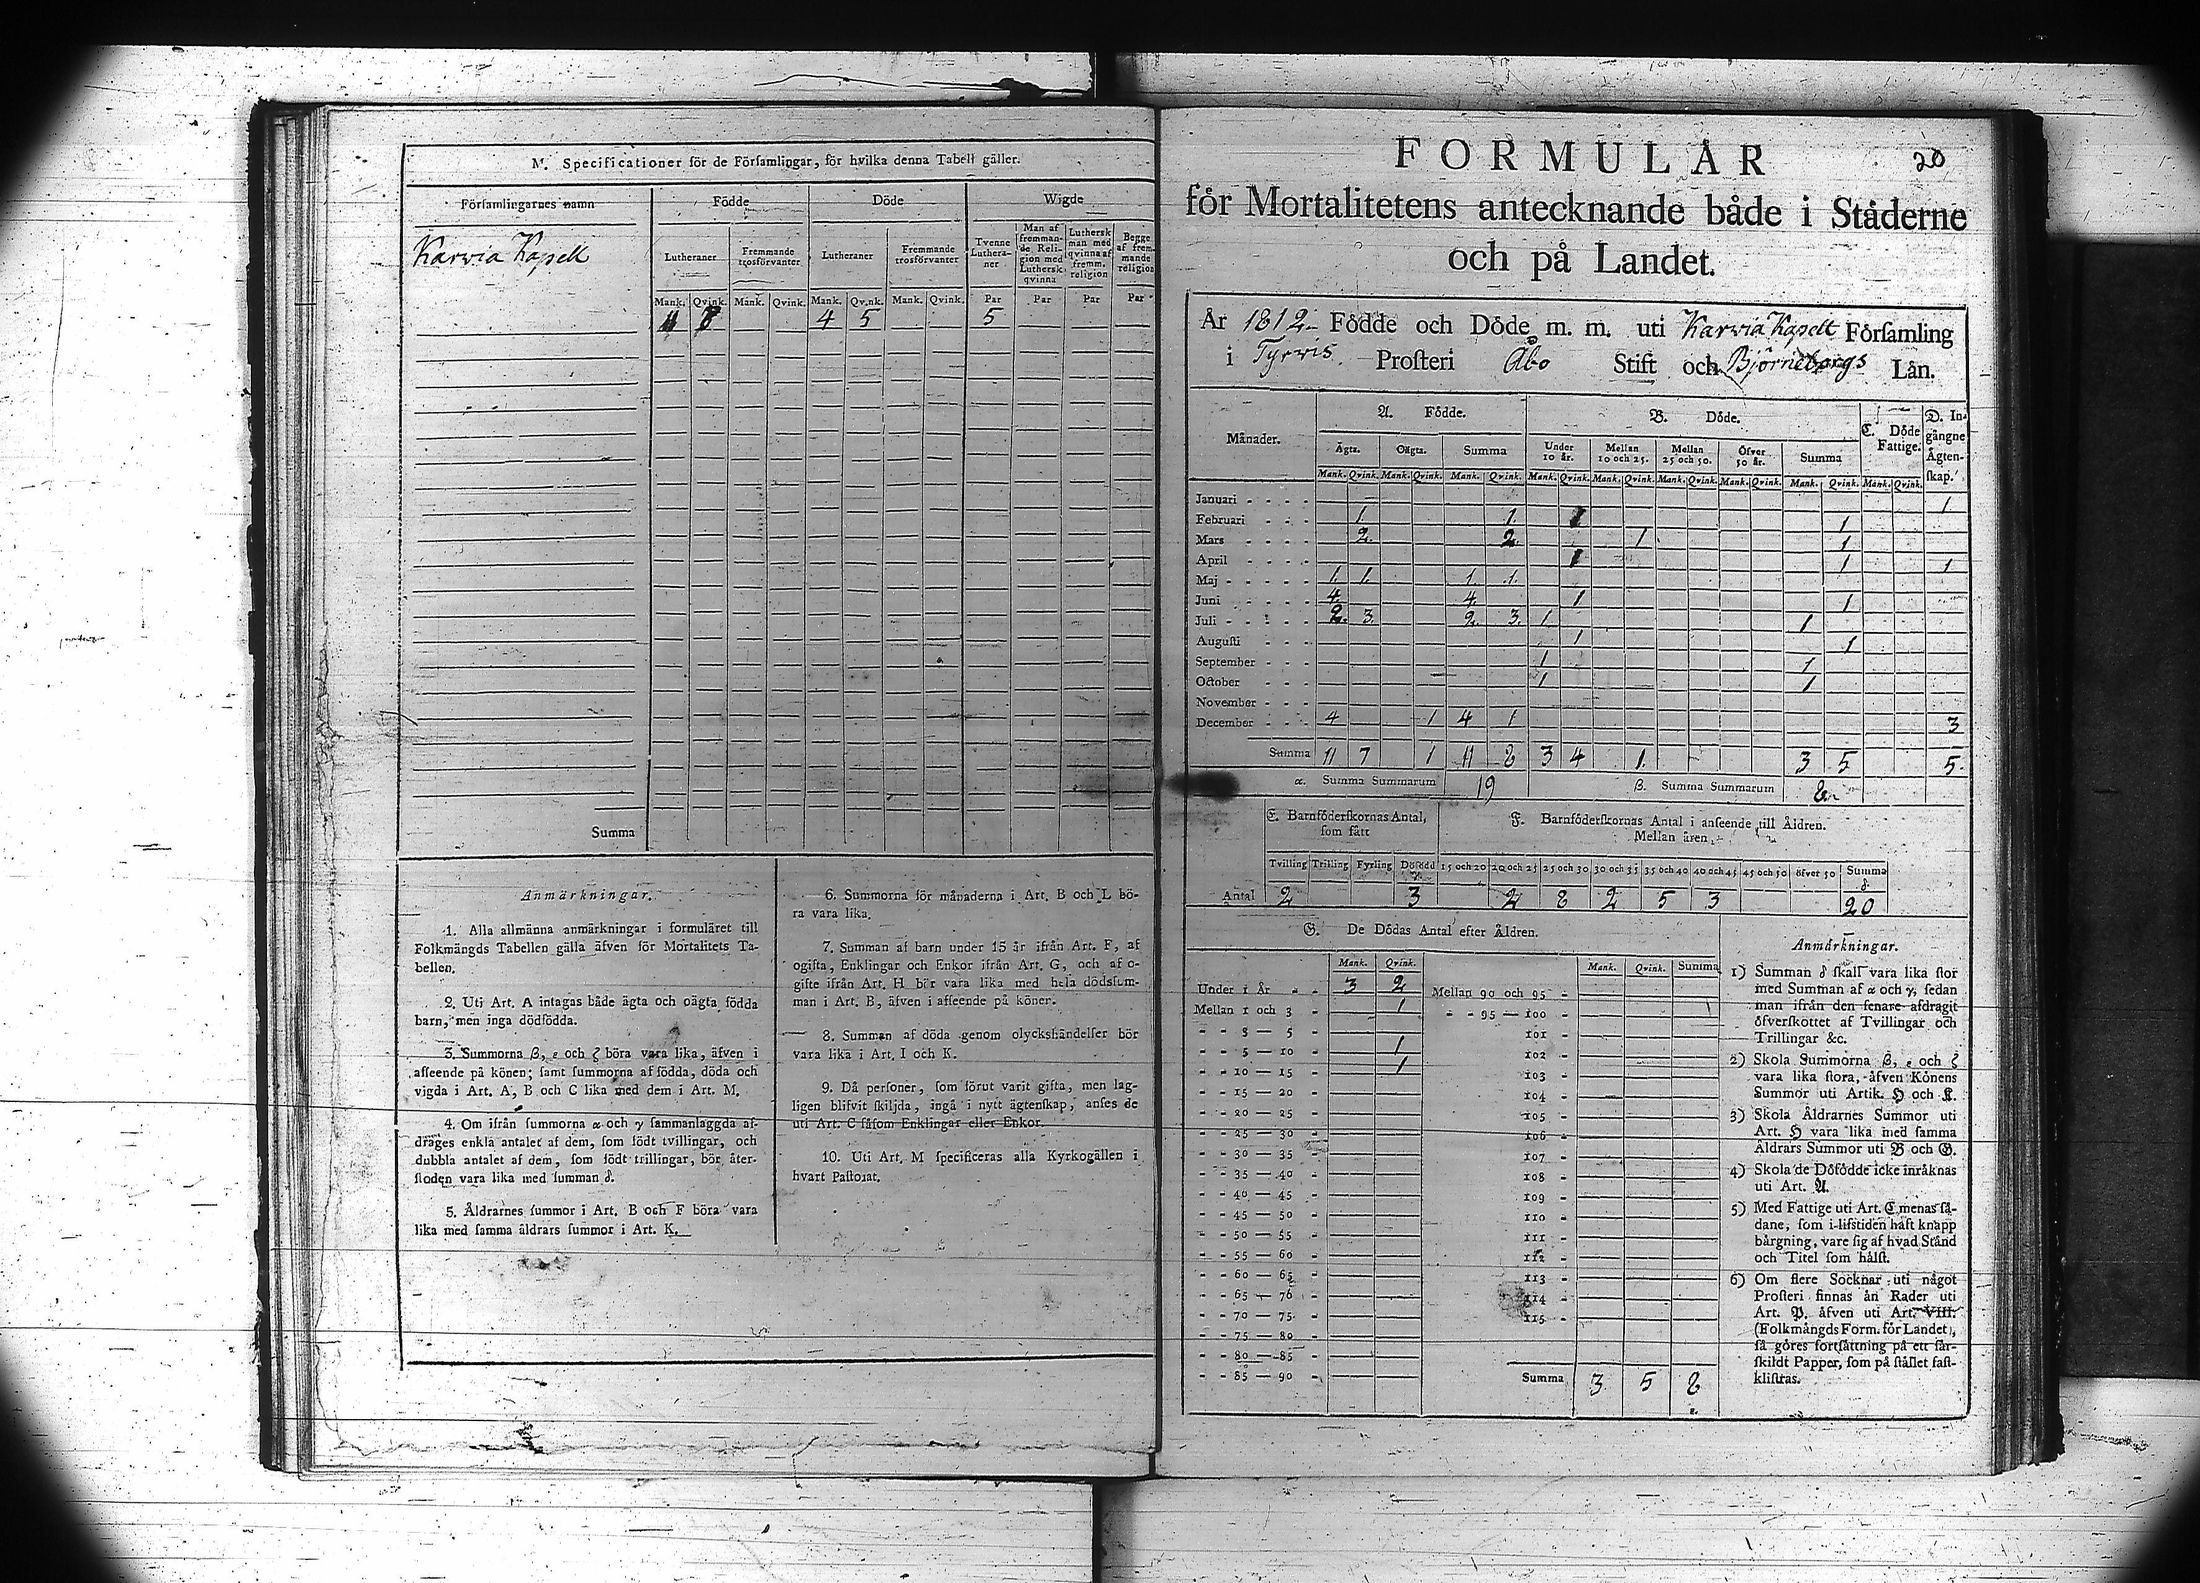 M. Specificationer för de Församlingar, för hvilka denna Tabell gäller.
Församlingarnes namn
Födde
Döde
Wigde
Lutheraner
Fremmande trosförvanter
Lutheraner
Fremmande trosförvanter
Tvenne Lutheraner
Man af fremmande Religion med Luthersk qvinna
Luthersk man med qvinna af fremm. religion
Begge af fremmande religion
Mank. Qvink. Mank. Qvink. Mank. Qvink. Mank. Qvink. Par Par Par Par
Karvia Kapell
11 8 4 5 5
Summa
Anmärkningar.
1. Alla allmänna anmärkningar i formuläret till
Folkmängds Tabellen gälla äfven för Mortalitets Ta-
bellen.
2. Uti Art. A intagas både ägta och oägta födda
barn, men inga dödfödda.
3. Summorna ß, ε och ζ böra vara lika, äfven i
afseende på könen; samt summorna af födda, döda och
vigda i Art. A, B och C lika med dem i Art. M.
4. Om ifrån summorna α och γ sammanlaggda af-
dräges enkla antalet af dem, som födt tvillingar, och
dubbla antalet af dem, som födt trillingar, bör åter-
stoden vara lika med summan δ.
5. Åldrarnes summor i Art. B och F böra vara
lika med samma åldrars summor i Art. K.
6. Summorna för månaderna i Art. B och L bö-
ra vara lika.
7. Summan af barn under 15 år ifrån Art. F, af
ogifta, Enklingar och Enkor ifrån Art. G, och af o-
gifte ifrån Art. H bör vara lika med hela dödsfum-
man i Art. B, äfven i afseende på köner.
8. Summan af döda genom olyckshändelser bör
vara lika i Art. I och K.
9. Då personer, som förut varit gifta, men lag-
ligen blifvit skiljda, ingå i nytt ägtenskap, anses de
uti Art. C såsom Enklingar eller Enkor.
10. Uti Art. M specificeras alla Kyrkogällen i
hvart Pastorat.
20
FORMULÅR
för Mortalitetens antecknande både i Ståderne
och på Landet.
År 1812 Födde och Döde m. m. uti Karvia Kapell Församling
i Tyrvis Prosteri Åbo Stift och Björneborgs Lån.
Månader.
A. Födde.
B. Döde.
C. Döde Fattige.
D. Ingångne Ägtenskap.
Ägta. Oägta. Summa Under 10 år. Mellan 10 och 25. Mellan 25 och 50. Öfver 50 år. Summa
Mank. Qvink. Mank. Qvink. Mank. Qvink. Mank. Qvink. Mank. Qvink. Mank. Qvink. Mank. Qvink. Mank. Qvink. Mank. Qvink.
Januari 1
Februari 1. 1. 1 1
Mars 2. 2. 1 1
April 1 1 1
Maj 1. 1. 1. 1.
Juni 4. 4. 1 1
Juli 2. 3. 2. 3. 1 1
Augusti 1 1
September 1 1
October 1 1
November
December 4 1 4 1 3
Summa 11 7 1 11 8 3 4 1. 3 5 5.
α. Summa Summarum 19
ß. Summa Summarum 8
E. Barnföderskornas Antal, som fått
F. Barnföderskornas Antal i anseende till Åldren.
Mellan åren.
Tvilling Trilling Fyrling Dödfödd γ. 15 och 20 20 och 25 25 och 30 30 och 35 35 och 40 40 och 45 45 och 50 öfver 50 Summa δ.
Antal 2 3 2 8 2 5 3 20
G. De Dödas Antal efter Åldren.
Mank. Qvink. Mank. Qvink. Summa
Under 1 År 3 2 Mellan 90 och 95
Mellan 1 och 3 1 95 — 100
3 — 5 101
5 — 10 1 102
10 — 15 1 103
15 — 20 104
20 — 25 105
25 — 30 106
30 — 35 107
35 — 40 108
40 — 45 109
45 — 50 110
50 — 55 111
55 — 60 112
60 — 65 113
65 — 70 114
70 — 75 115
75 — 80
80 — 85
85 — 90
Summa 3 5 8
Anmärkningar.
1) Summan δ skall vara lika stor
med Summan af α och γ, sedan
man ifrån den senare afdragit
öfverskottet af Tvillingar och
Trillingar &c.
2) Skola Summorna ß, ε och ζ
vara lika stora, åfven Könens
Summor uti Artik. H och K.
3) Skola Åldrarnes Summor uti
Art. H vara lika med samma
Åldrars Summor uti B och G.
4) Skola de Döfödde icke inråknas
uti Art. A.
5) Med Fattige uti Art. C menas så-
dane, som i lifstiden haft knapp
bårgning, vare sig af hvad Stånd
och Titel som hålst.
6) Om flere Socknar uti något
Prosteri finnas ån Rader uti
Art. P. åfven uti Art. VIII.
(Folkmångds Form. för Landet),
så göres fortsåttning på ett sår-
skildt Papper, som på stållet fast-
klistras.